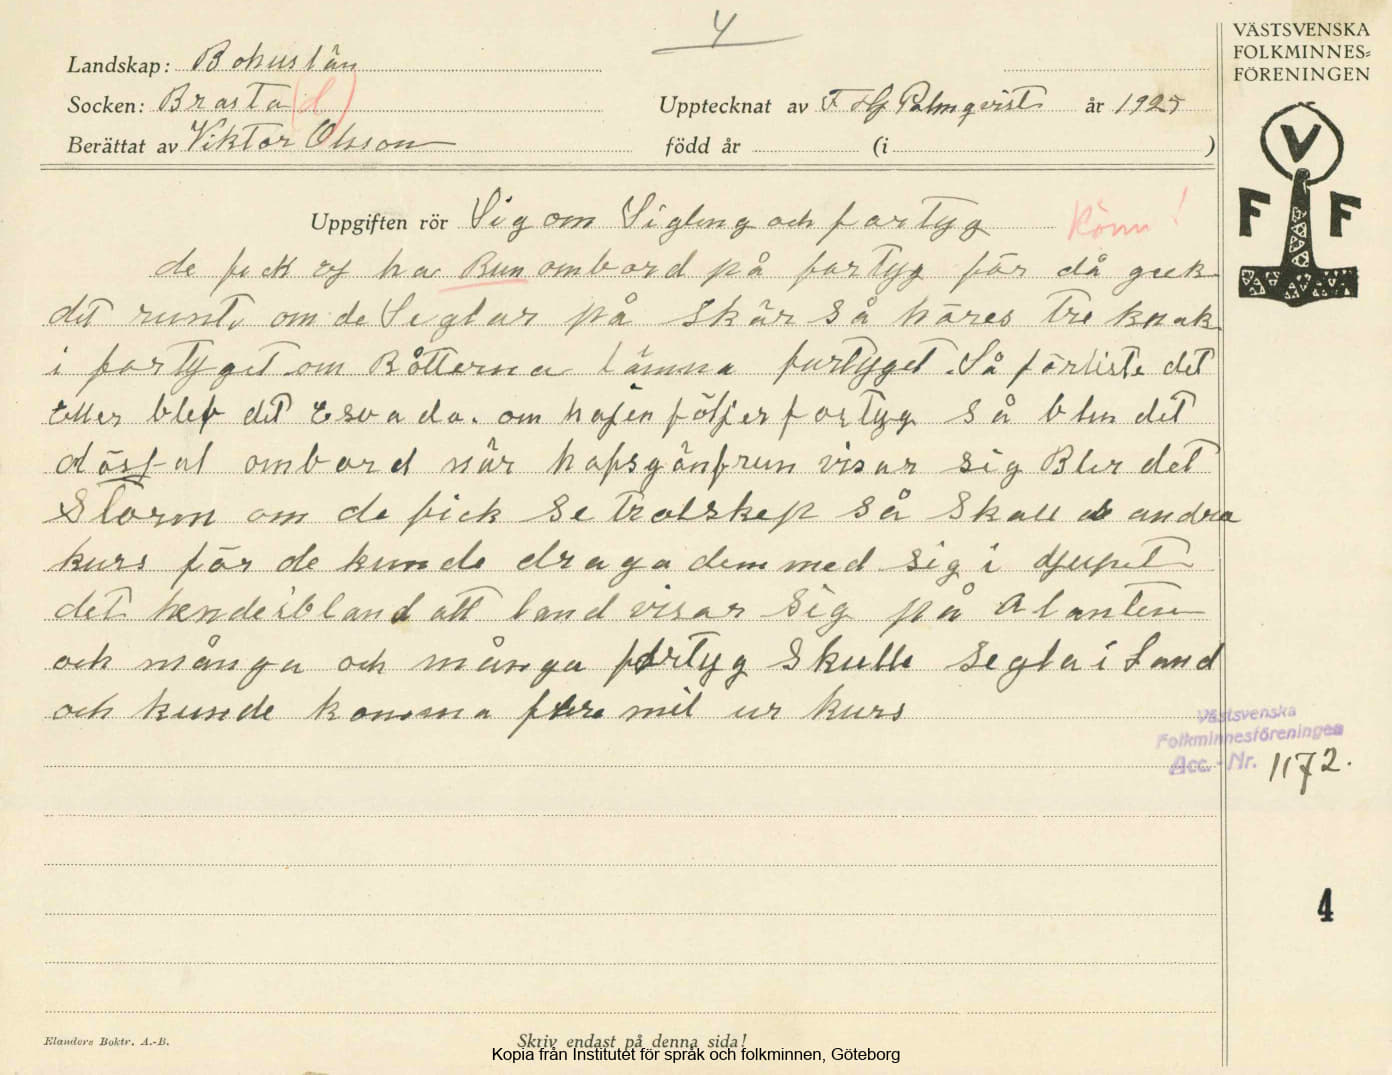 4
VÄSTSVENSKA
FOLKMINNES=
FÖRENINGEN
Landskap: Bohuslän
Socken: Brasta (d)
Upptecknat av F Hj Palmqvist år 1925
Berättat av Viktor Olsson född år (i )
V
F F
Uppgiften rör Sig om Sigling och fartyg Rönn!
de fick ej ha Run ombord på fartyg för då geek
det runt om de Seglar på Skär Så höres tre knak
i fartyget om Råtterna lämna fartyget. Så förliste det
Eller blef det Esvada. om hajen följer fartyg så blir det
dösf-al ombord när hafsgånfrun visar sig Bler det
Storm om de fick Se trolskep så Skall de andra
kurs för de kunde draga dem med sig i djupet
det hendeibland att land visar Sig på Alanten
och många och många fartyg Skulle Segla i Land
och kunde komma flere mil ur kurs
Västsvenska
Folkminnesföreningen
Acc.-Nr. 1172.
4
Elanders Boktr. A.-B.
Skriv endast på denna sida!
Kopia från Institutet för språk och folkminnen, Göteborg